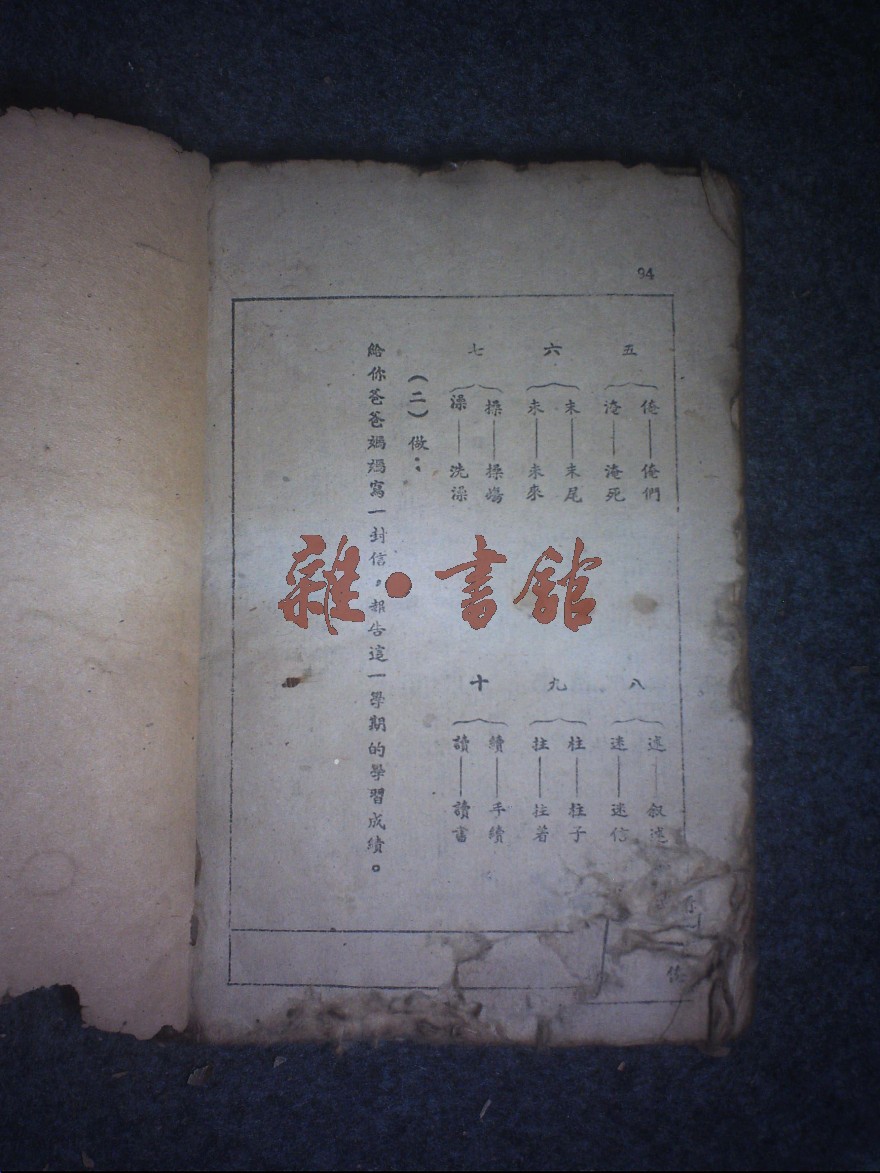 94
五
俺——俺們
淹——淹死
六
末——末尾
未——未來
七
操——操場
澡——洗澡
八
述——叙述
迷——迷信
九
柱——柱子
拄——拄着
十
續——手續
讀——讀書
（二）做：
給你爸爸媽媽寫一封信，報告這一學期的學習成績。
雜·書館